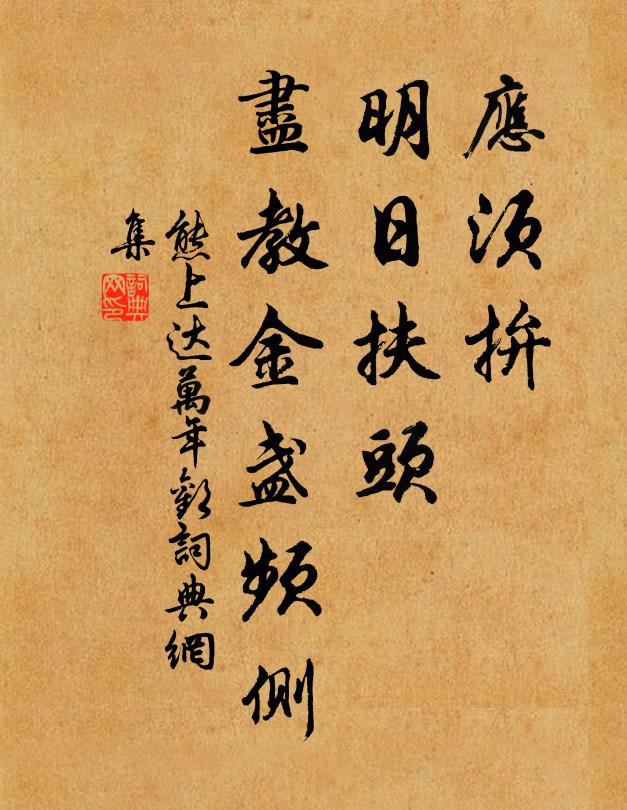 應須拚
明日扶頭
盡教金盞頻側
熊上达萬年歡詞典網
集
詞典
网印